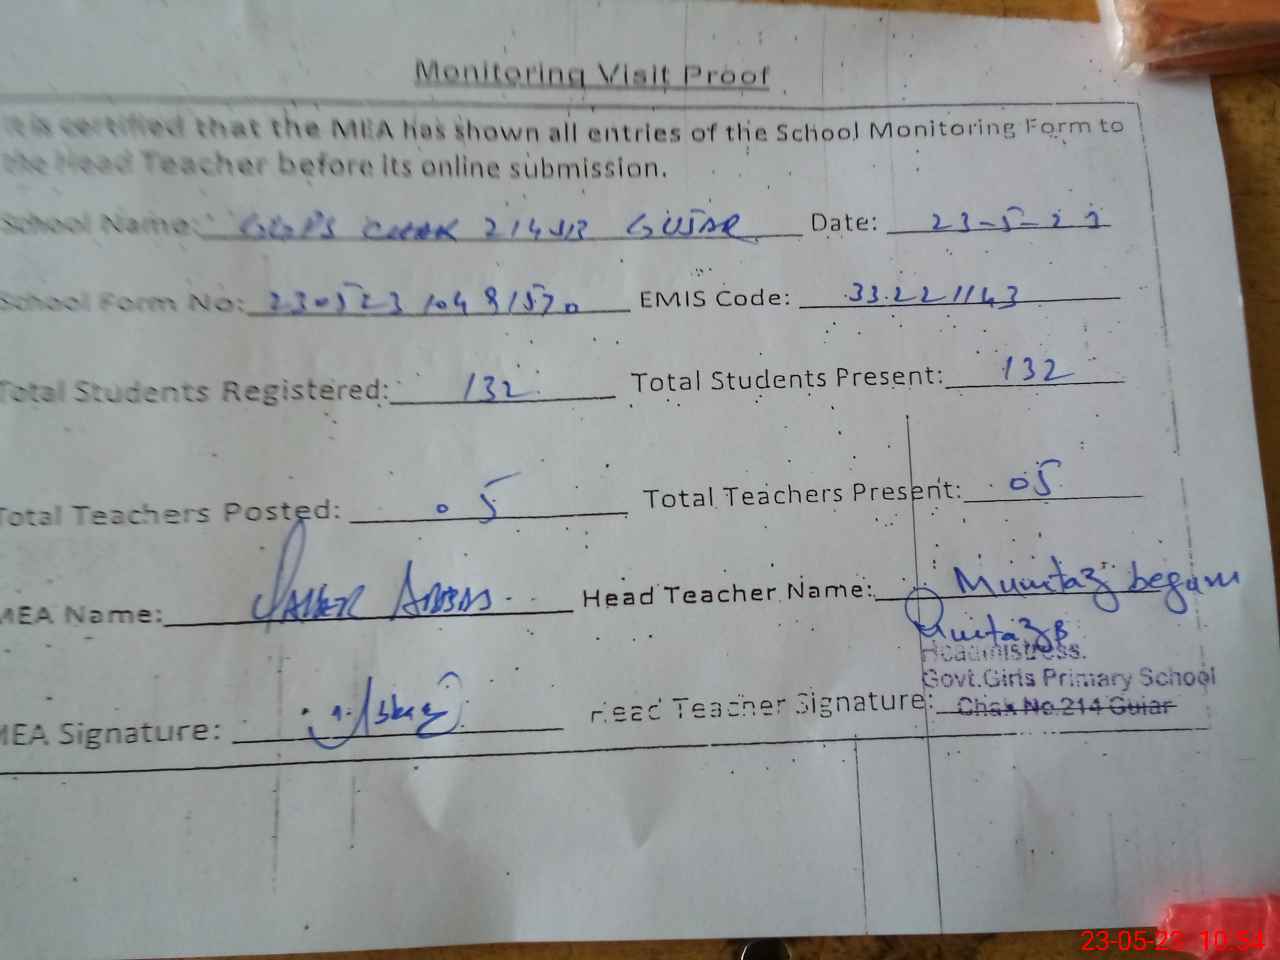 Monitoring Visit Proof
It is certified that the MEA has shown all entries of the School Monitoring Form to
the Head Teacher before its online submission.
School Name: GGPS CHAK 214 JB GUJAR Date: 23-5-23
School Form No: 23052310481570 EMIS Code: 33221143
Total Students Registered: 132 Total Students Present: 132
Total Teachers Posted: 05 Total Teachers Present: 05
MEA Name: ABBAS Head Teacher Name: Mumtaz begam
Mumtaz B
Headmistress.
Govt.Girls Primary School
MEA Signature: Head Teacher Signature: Chak No.214 Gujar
23-05-23 10:54